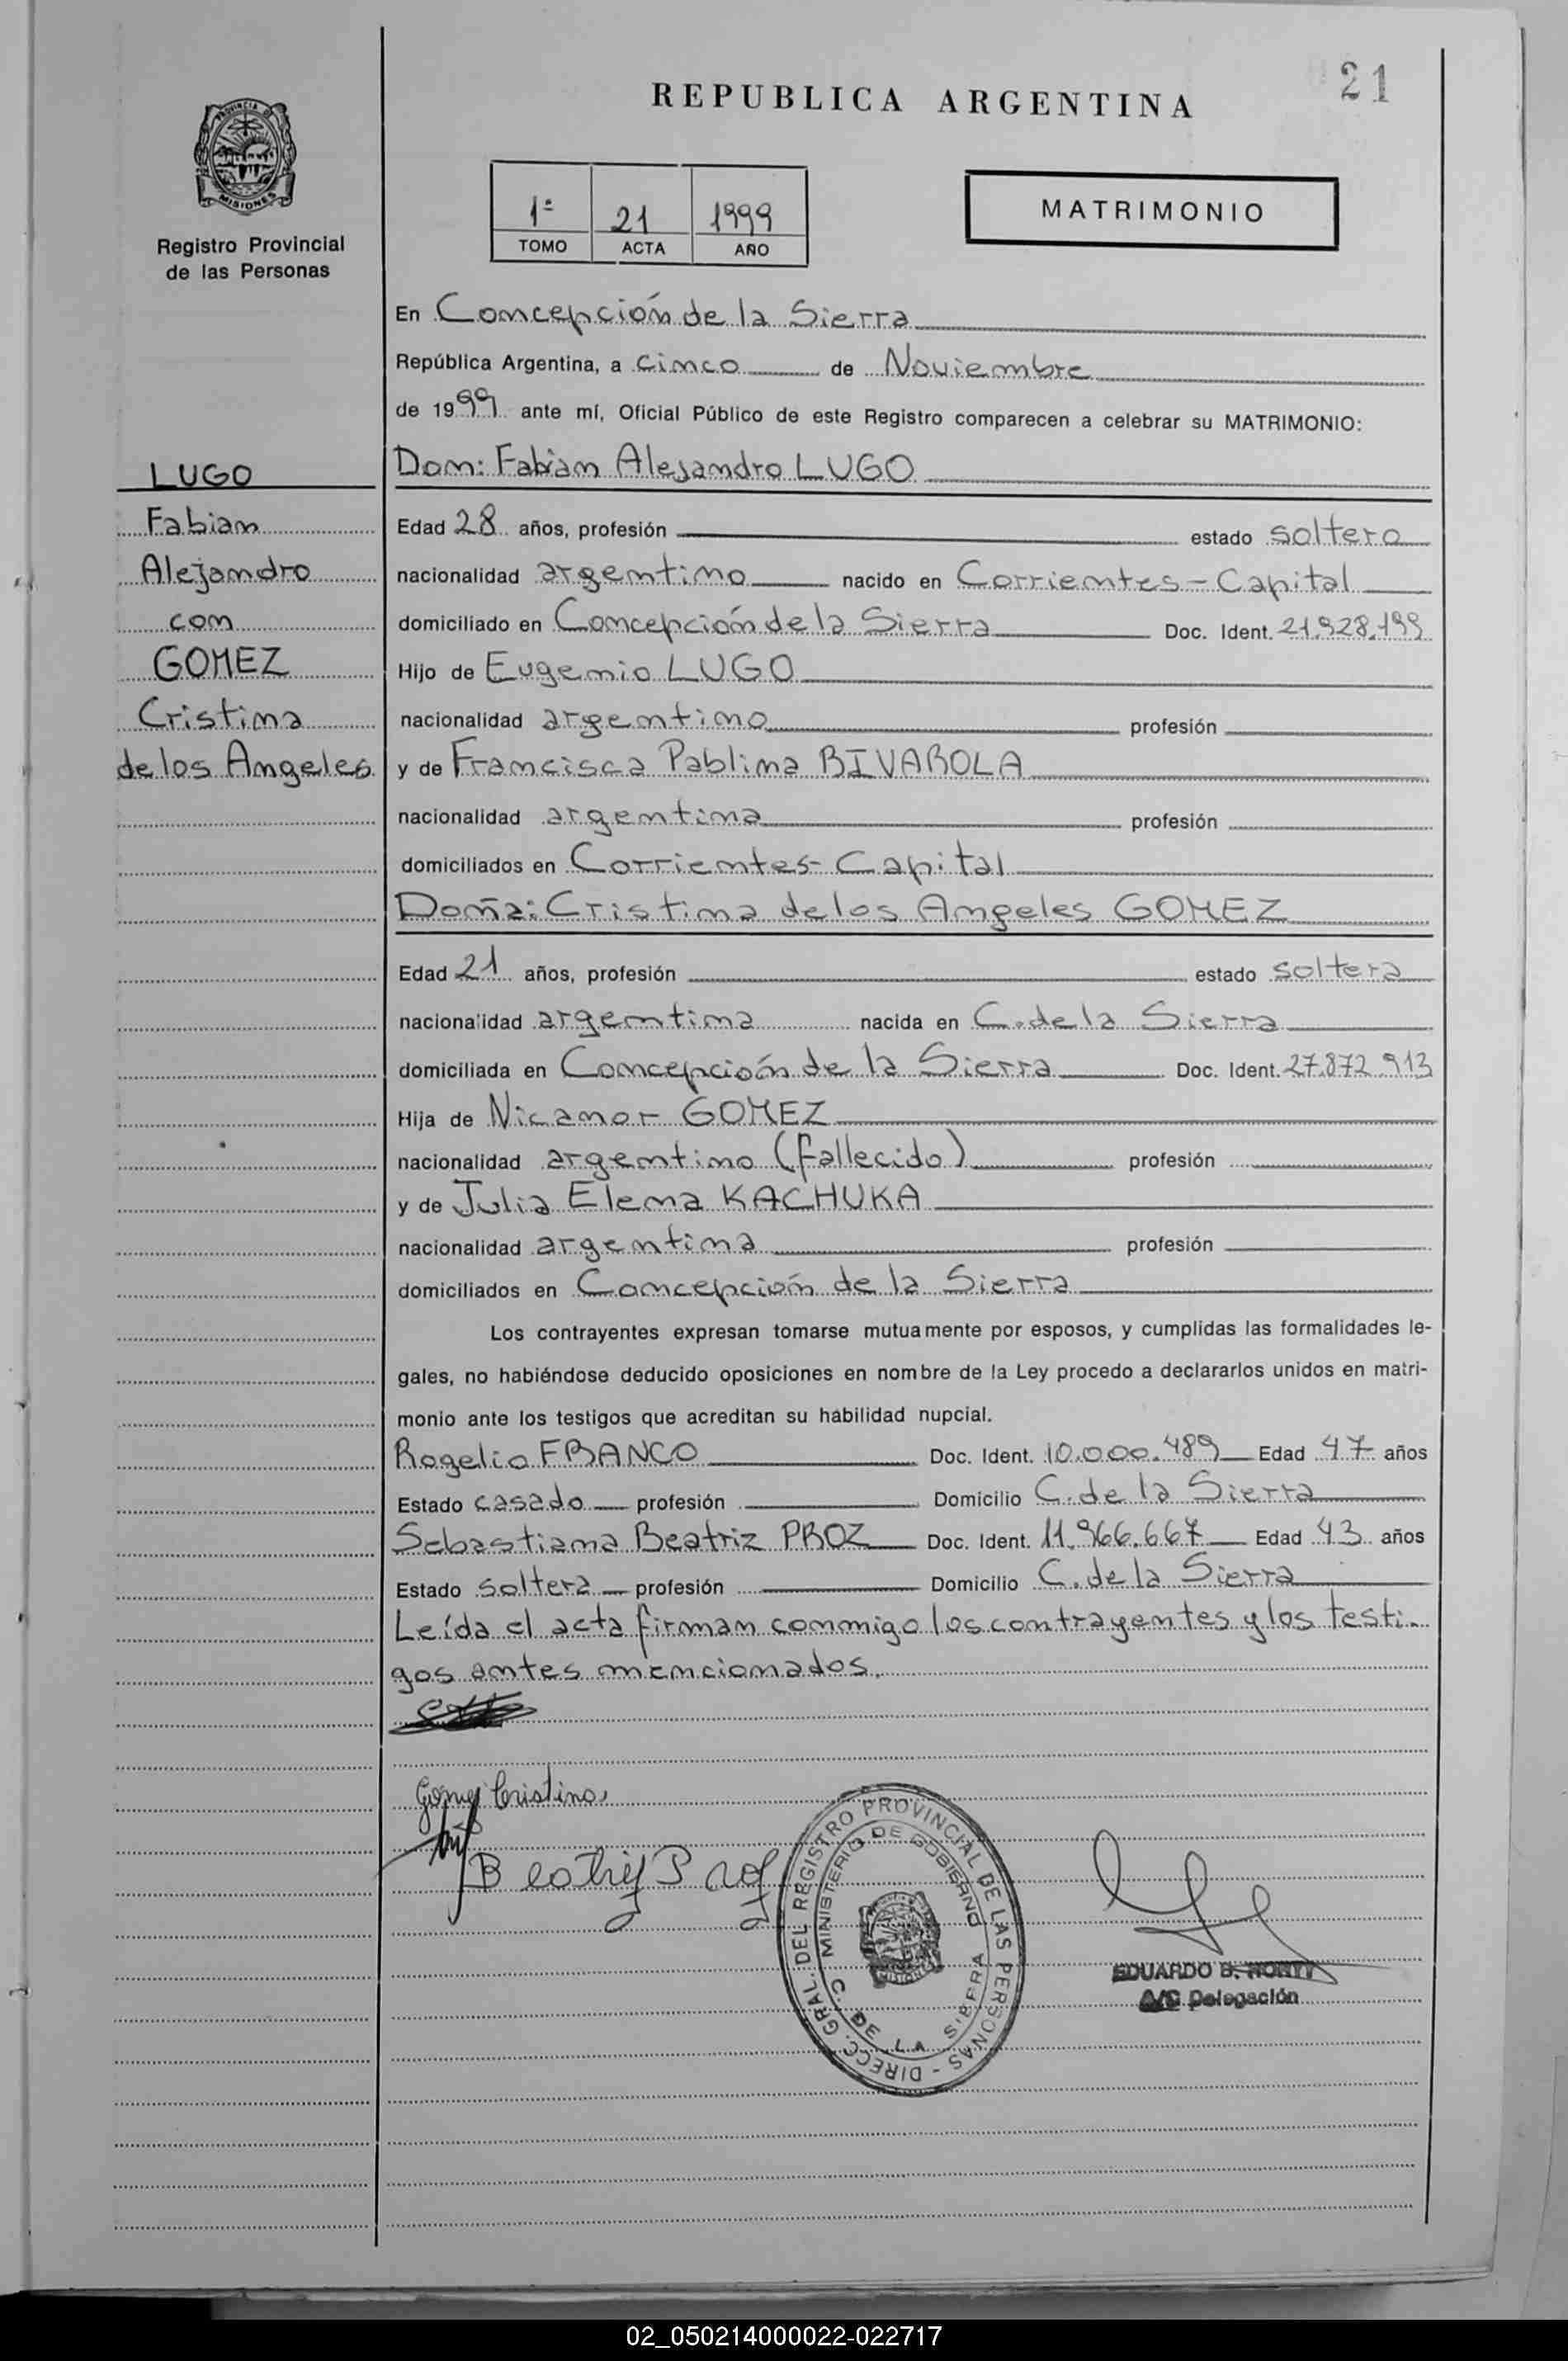 REPUBLICA ARGENTINA
21
PROVINCIA D
MISIONES
Registro Provincial
de las Personas
1º 21 1999
TOMO ACTA AÑO
MATRIMONIO
En Concepción de la Sierra
República Argentina, a cinco de Noviembre
de 1999 ante mí, Oficial Público de este Registro comparecen a celebrar su MATRIMONIO:
LUGO
Fabian
Alejandro
con
GOMEZ
Cristina
de los Angeles
Don: Fabian Alejandro LUGO
Edad 28 años, profesión estado soltero
nacionalidad argentino nacido en Corrientes-Capital
domiciliado en Concepción de la Sierra Doc. Ident. 21.928.199
Hijo de Eugenio LUGO
nacionalidad argentino profesión
y de Francisca Pablina RIVAROLA
nacionalidad argentina profesión
domiciliados en Corrientes-Capital
Doña: Cristina de los Angeles GOMEZ
Edad 21 años, profesión estado soltera
nacionalidad argentina nacida en C. de la Sierra
domiciliada en Concepción de la Sierra Doc. Ident. 27.872.913
Hija de Nicanor GOMEZ
nacionalidad argentino (fallecido) profesión
y de Julia Elena KACHUKA
nacionalidad argentina profesión
domiciliados en Concepción de la Sierra
Los contrayentes expresan tomarse mutuamente por esposos, y cumplidas las formalidades le-
gales, no habiéndose deducido oposiciones en nombre de la Ley procedo a declararlos unidos en matri-
monio ante los testigos que acreditan su habilidad nupcial.
Rogelio FRANCO Doc. Ident. 10.000.489 Edad 47 años
Estado casado profesión Domicilio C. de la Sierra
Sebastiana Beatriz PROZ Doc. Ident. 11.966.667 Edad 43 años
Estado soltera profesión Domicilio C. de la Sierra
Leída el acta firman conmigo los contrayentes y los testi-
gos antes mencionados.
Gomez Cristina
Beatriz Proz
DIRECC. GRAL. DEL REGISTRO PROVINCIAL DE LAS PERSONAS -
MINISTERIO DE GOBIERNO
C. DE LA SIERRA
EDUARDO B.
A/C Delegación
02_050214000022-022717